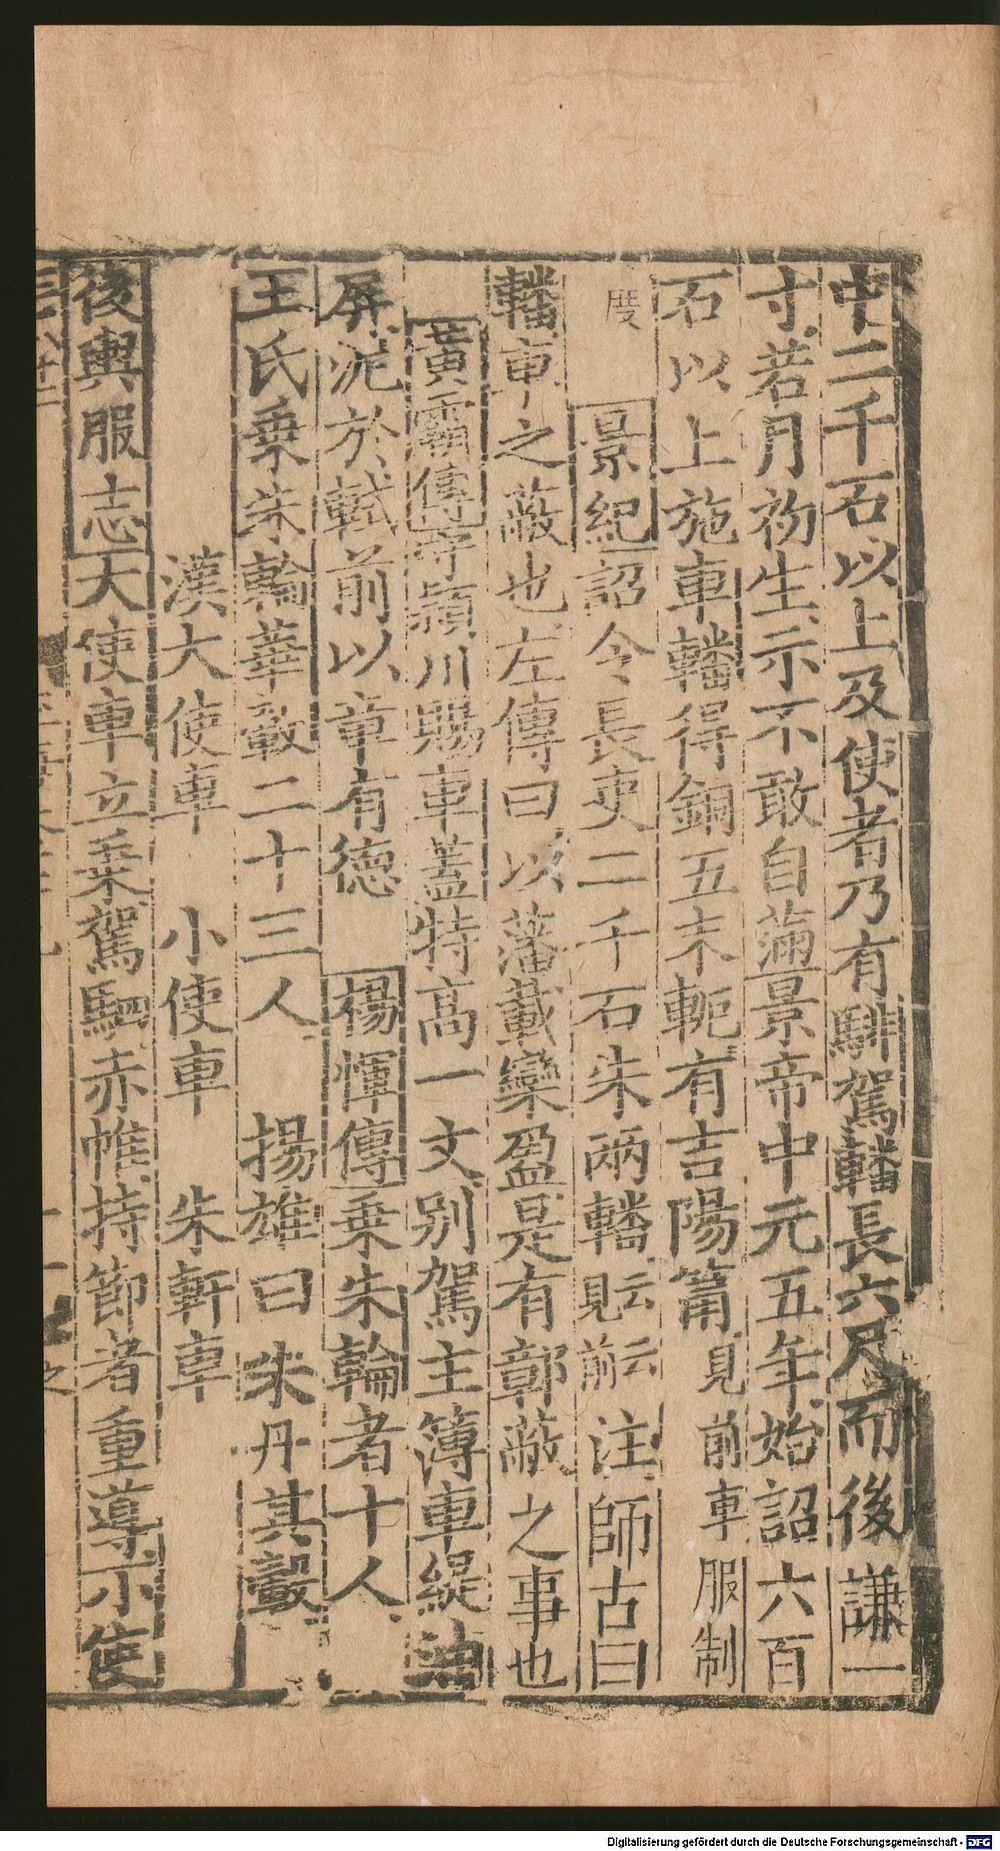 中二千石以上及使者乃有騑駕轓長六尺而後謙一
寸若月初生示不敢自滿景帝中元五年始詔六百
石以上施車轓得銅五末軛有吉陽筩見前車服制
度　景紀詔令長吏二千石朱兩轓見云前云注師古曰
轓車之蔽也左傳曰以藩載欒盈是有鄣蔽之事也
黃霸傳守潁川賜車蓋特高一丈別駕主簿車緹油
屏泥於軾前以章有德　楊惲傳乗朱輪者十人
王氏乗朱輪華轂二十三人　揚雄曰朱丹其轂
漢大使車　小使車　朱軒車
後輿服志大使車立乗駕駟赤帷持節者重導小使
Digitalisierung gefördert durch die Deutsche Forschungsgemeinschaft - DFG